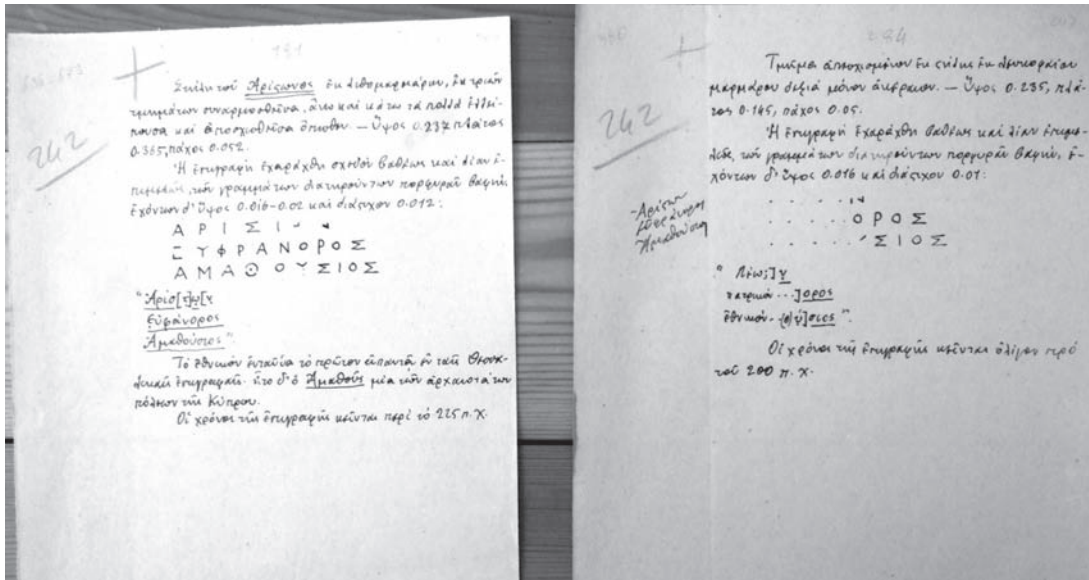 191
242
Στήλη τοῦ Ἀρίστωνος ἐκ λιθομαρμάρου, ἐκ τριῶν
τμημάτων συναρμοσθεῖσα, ἄνω καὶ κάτω τὰ πολλὰ ἐλλεί-
πουσα καὶ ἀποσχισθεῖσα ὄπισθεν. — Ὕψος 0.237 πλάτος
0.365, πάχος 0.052.
Ἡ ἐπιγραφὴ ἐχαράχθη σχεδὸν βαθέως καὶ λίαν ἐ-
πιμελῶς, τῶν γραμμάτων διατηρούντων πορφυρᾶν βαφήν,
ἐχόντων δ' ὕψος 0.016-0.02 καὶ διάστιχον 0.012:
Α Ρ Ι Σ Ι
Ξ Υ Φ Ρ Α Ν Ο Ρ Ο Σ
Α Μ Α Θ Ο Υ Σ Ι Ο Σ
"Ἀρίσ[τ]ω[ν
Εὐφράνορος
Ἀμαθούσιος".
Τὸ ἐθνικὸν ἐνταῦθα τὸ πρῶτον ἀπαντᾷ ἐν ταῖς Θεσσα-
λικαῖς ἐπιγραφαῖς· ἦτο δ' ὁ Ἀμαθοῦς μία τῶν ἀρχαιοτάτων
πόλεων τῆς Κύπρου.
Οἱ χρόνοι τῆς ἐπιγραφῆς κεῖνται περὶ τὸ 225 π. χ.
242
Τμῆμα ἀποσχισμένον ἐκ στήλης ἐκ λευκοφαίου
μαρμάρου δεξιὰ μόνον ἀκέραιον. — Ὕψος 0.235, πλά-
τος 0.145, πάχος 0.05.
Ἡ ἐπιγραφὴ ἐχαράχθη βαθέως καὶ λίαν ἐπιμε-
λῶς, τῶν γραμμάτων διατηρούντων πορφυρᾶν βαφήν, ἐ-
χόντων δ' ὕψος 0.016 καὶ διάστιχον 0.01:
- Ἀρίστων
Εὐφράνορος
Ἀμαθούσιος
. . . . . Ν
. . . . . Ο Ρ Ο Σ
. . . . . Σ Ι Ο Σ
" Λέως;]ν
πατρικὸν ...]ορος
ἐθνικὸν -(ο)ύ]σιος".
Οἱ χρόνοι τῆς ἐπιγραφῆς κεῖνται ὀλίγον πρὸ
τοῦ 200 π. χ.